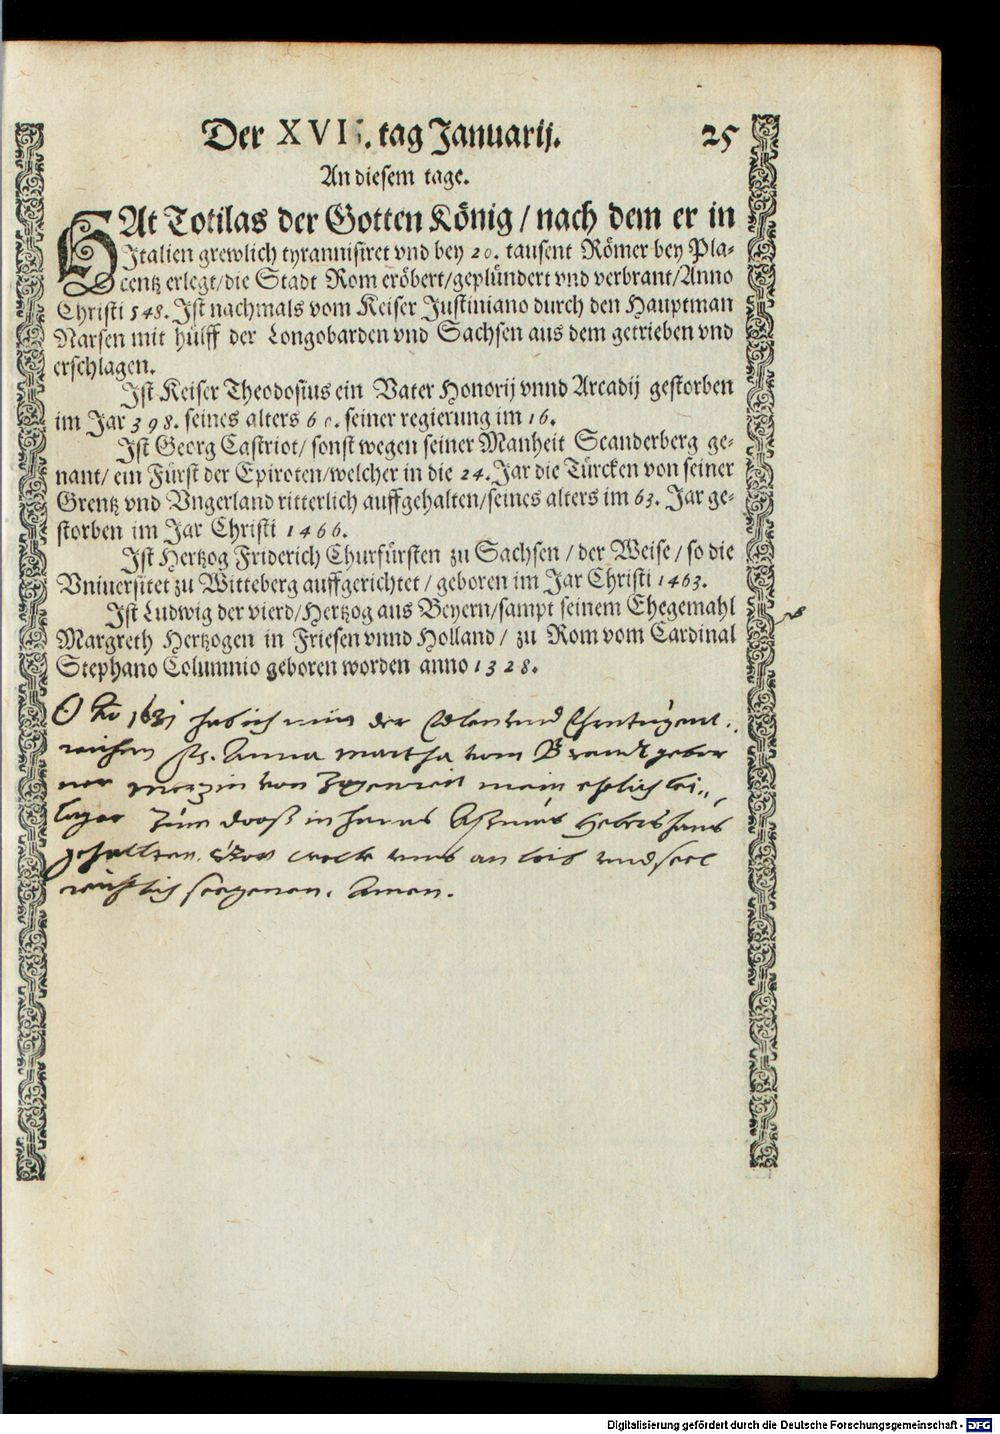 Der XVII. tag Januarij. 25
An diesem tage.
HAt Totilas der Gotten König / nach dem er in
Italien grewlich tyrannisiret vnd bey 20. tausent Römer bey Pla-
centz erlegt/die Stadt Rom eröbert/geplündert vnd verbrant/Anno
Christi 548. Ist nachmals vom Keiser Justiniano durch den Hauptman
Narsen mit hülff der Longobarden vnd Sachsen aus dem getrieben vnd
erschlagen.
Ist Keiser Theodosius ein Vater Honorij vnnd Arcadij gestorben
im Jar 398. seines alters 60. seiner regierung im 16.
Ist Georg Castriot/ sonst wegen seiner Manheit Scanderberg ge-
nant/ ein Fürst der Epiroten/welcher in die 24. Jar die Türcken von seiner
Grentz vnd Vngerland ritterlich auffgehalten/seines alters im 63. Jar ge-
storben im Jar Christi 1466.
Ist Hertzog Friderich Churfürsten zu Sachsen / der Weise / so die
Vniuersitet zu Witteberg auffgerichtet / geboren im Jar Christi 1463.
Ist Ludwig der vierd/Hertzog aus Beyern/sampt seinem Ehegemahl
Margreth Hertzogen in Friesen vnnd Holland / zu Rom vom Cardinal
Stephano Columnio geboren worden anno 1328.
Ao 1631 hab ich mitt der Edlen vnd Ehrntugent
reichen Anna martha vom Brandt gebor
ner von mein ehelich bei
lager zum in hanns hauß
gehaltten. Gott wolle vnns an leib vnd seel
reichlich seegenen. Amen.
Digitalisierung gefördert durch die Deutsche Forschungsgemeinschaft - DFG